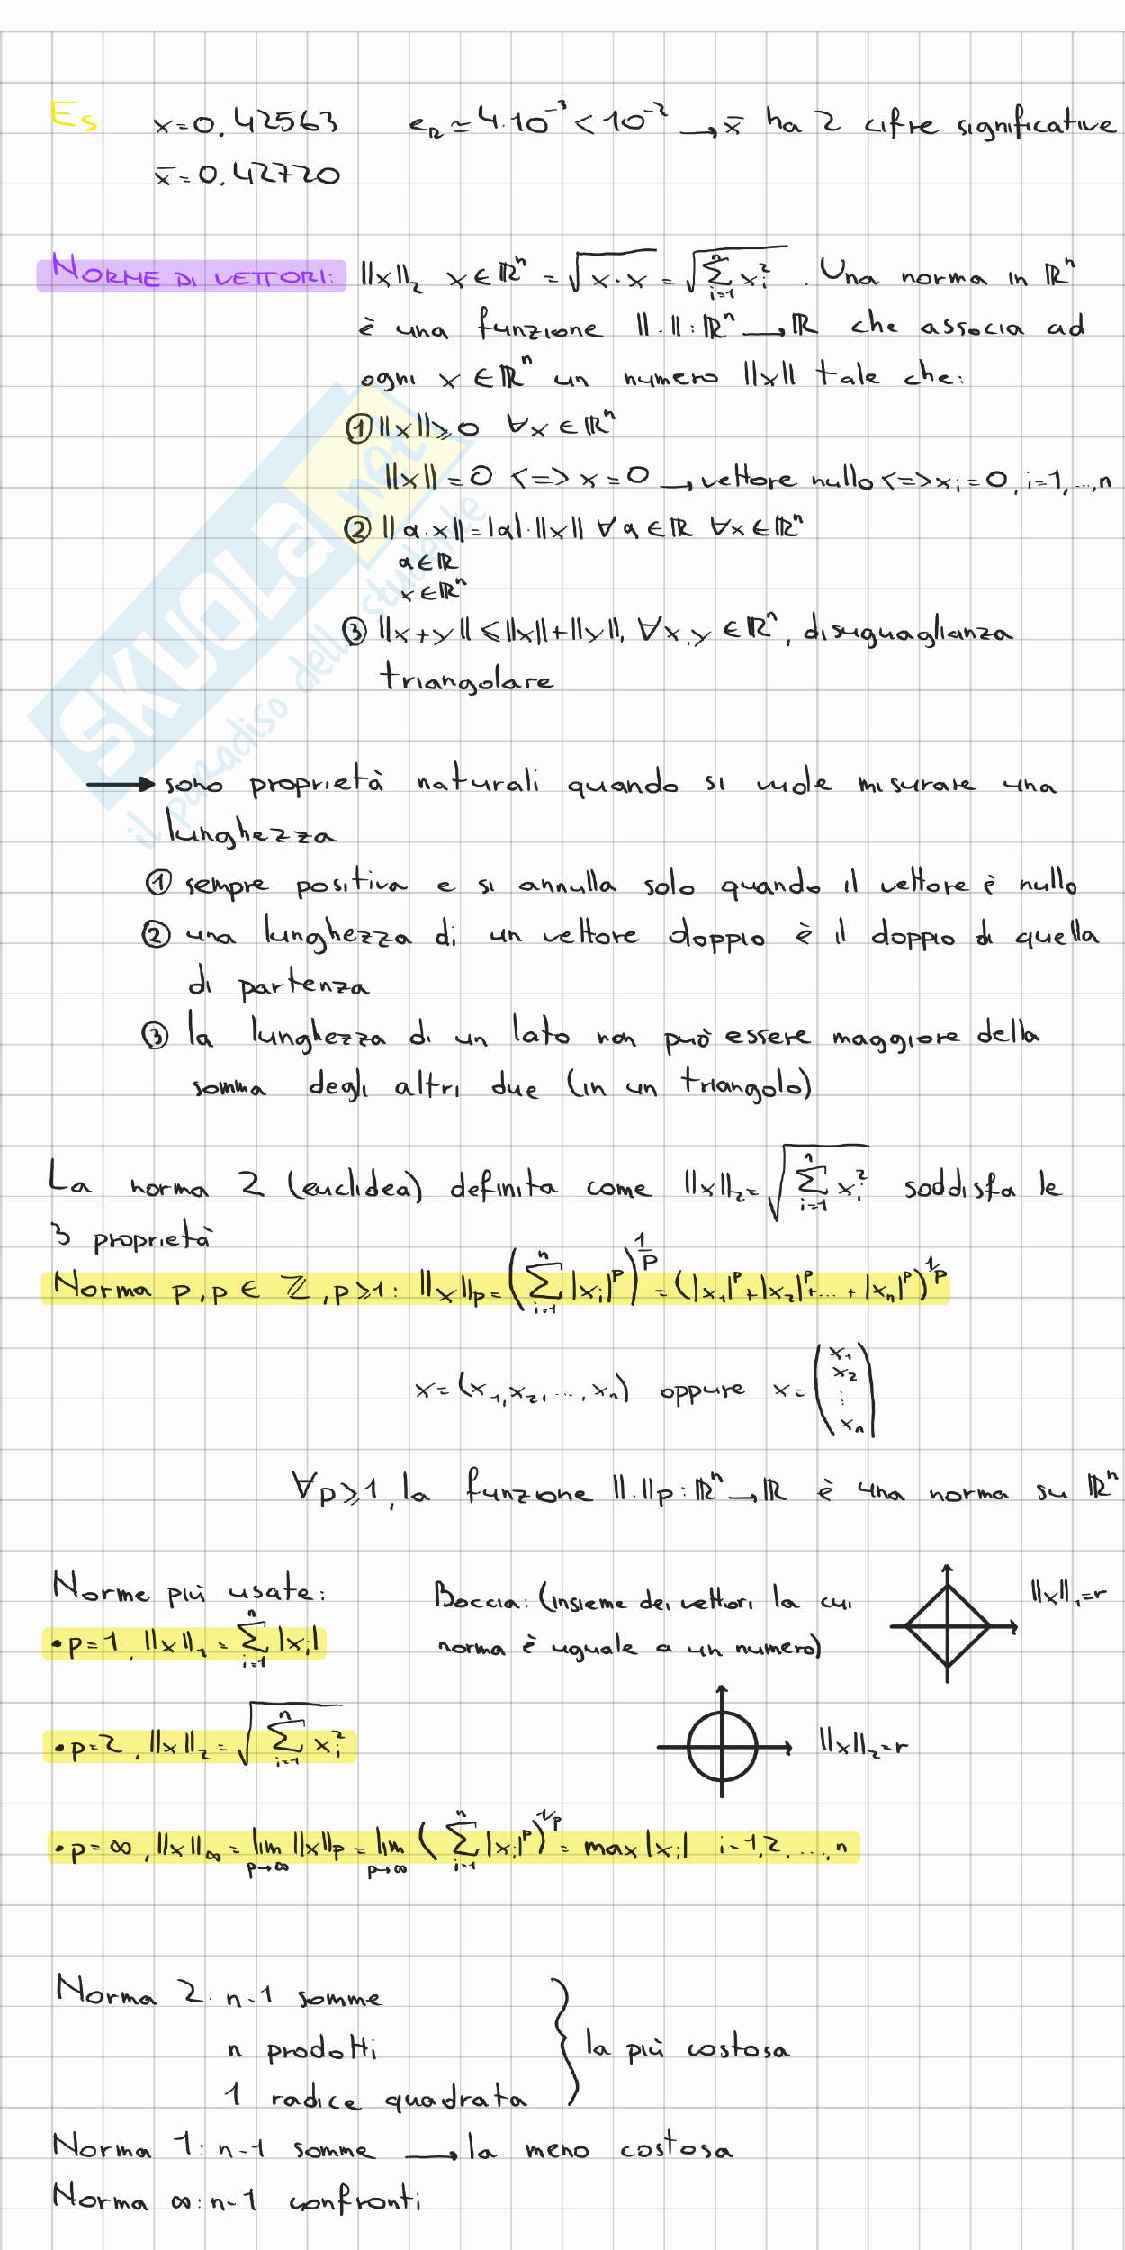 Es x=0.42563 e_R ≃ 4·10⁻³ < 10⁻² → x̄ ha 2 cifre significative
x̄=0.42720
NORME DI VETTORI: ||x||₂ x∈ℝⁿ = √(x·x) = √(∑_{i=1}^{n} x_i²). Una norma in ℝⁿ
è una funzione ||.||: ℝⁿ → ℝ che associa ad
ogni x∈ℝⁿ un numero ||x|| tale che:
① ||x||≥0 ∀x∈ℝⁿ
||x||=0 <=> x=0 → vettore nullo <=> x_i=0, i=1,...,n
② ||a·x||=|a|·||x|| ∀a∈ℝ ∀x∈ℝⁿ
a∈ℝ
x∈ℝⁿ
③ ||x+y||≤||x||+||y||, ∀x,y∈ℝⁿ, disuguaglianza
triangolare
SKUOLA.net
il paradiso dello studente
→ sono proprietà naturali quando si vuole misurare una
lunghezza
① sempre positiva e si annulla solo quando il vettore è nullo
② una lunghezza di un vettore doppio è il doppio di quella
di partenza
③ la lunghezza di un lato non può essere maggiore della
somma degli altri due (in un triangolo)
La norma 2 (euclidea) definita come ||x||₂=√(∑_{i=1}^{n} x_i²) soddisfa le
3 proprietà
Norma p, p∈ℤ, p≥1: ||x||_p=(∑_{i=1}^{n} |x_i|^p)^{1/p}=(|x₁|^p+|x₂|^p+...+|x_n|^p)^{1/p}
x=(x₁,x₂,...,x_n) oppure x=(x₁ x₂ ⋮ x_n)
∀p≥1, la funzione ||.||p: ℝⁿ → ℝ è una norma su ℝⁿ
Norme più usate: Boccia: (insieme dei vettori la cui ||x||₁=r
•p=1, ||x||₁=∑_{i=1}^{n} |x_i| norma è uguale a un numero)
•p=2, ||x||₂=√(∑_{i=1}^{n} x_i²) ||x||₂=r
•p=∞, ||x||_∞=lim_{p→∞} ||x||_p=lim_{p→∞} (∑_{i=1}^{n} |x_i|^p)^{1/p}=max|x_i| i=1,2,...,n
Norma 2: n-1 somme
n prodotti } la più costosa
1 radice quadrata
Norma 1: n-1 somme → la meno costosa
Norma ∞: n-1 confronti